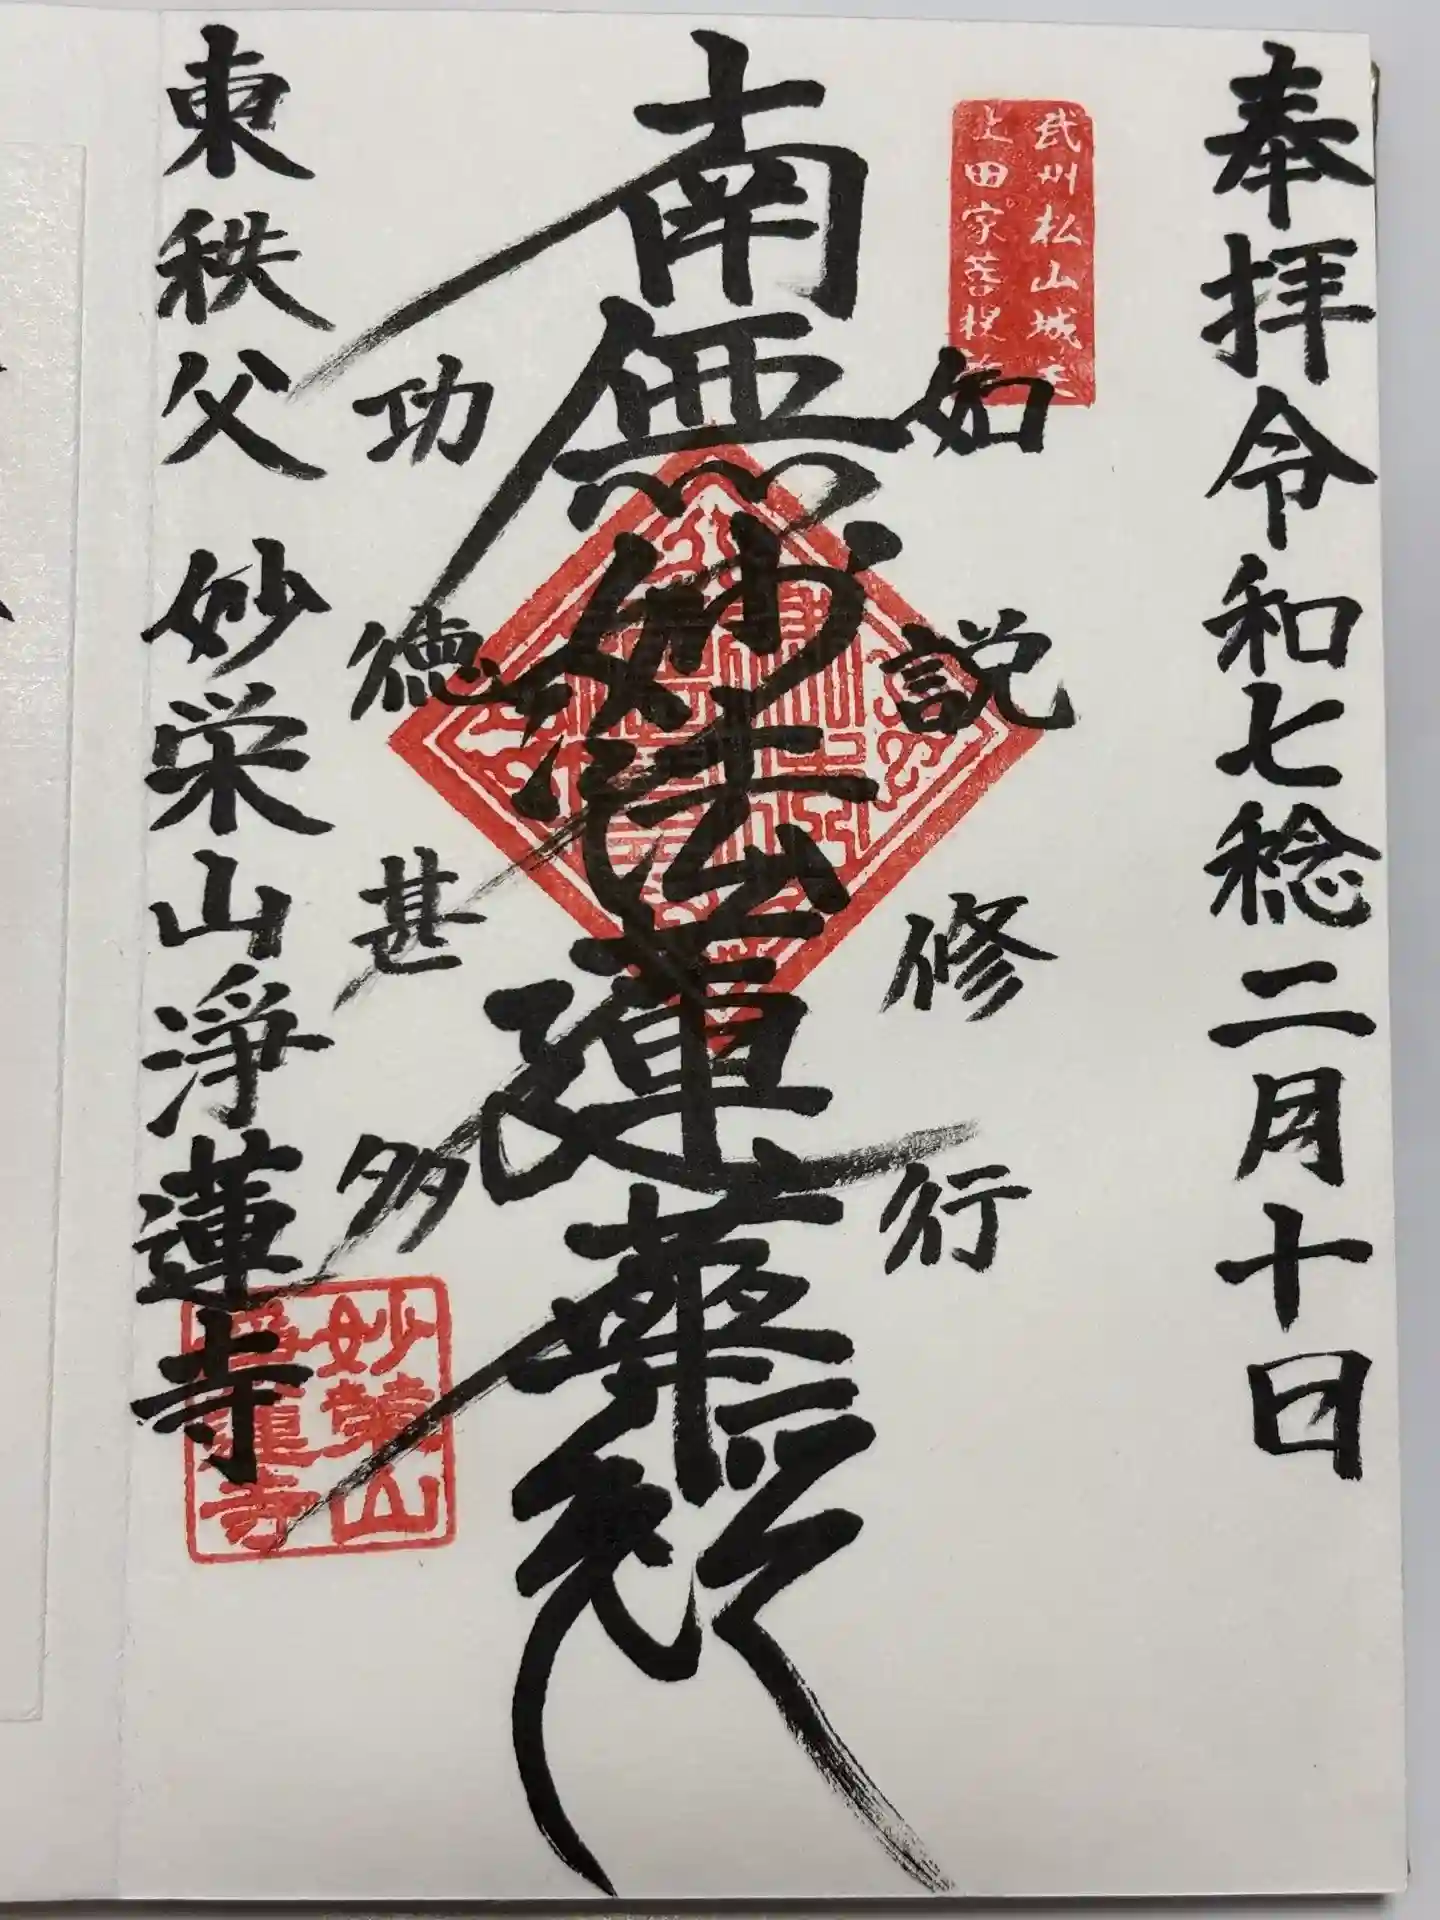 奉拝令和七稔二月十日
武州松山城主
上田家菩提寺
如説修行
南無妙法蓮華経
功徳甚多
東秩父 妙栄山浄蓮寺
妙榮山
浄蓮寺